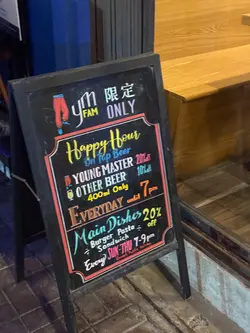 YM 限定
FAM ONLY
Happy Hour
On Tap Beer
YOUNG MASTER
OTHER BEER
400ml Only
EVERYDAY until 7pm
Main Dishes 20% off
Burger Pasta
Sandwich
Every SUN-THU 7-9pm